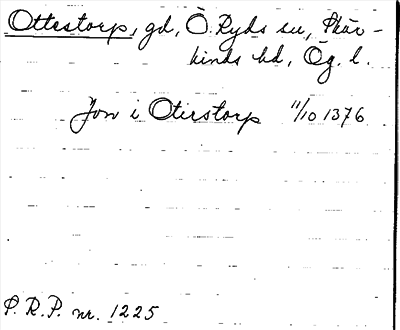 Ottestorp, gd, Ö. Ryds sn, Skär-
kinds hd, Ög. l.
Jon i Oterstorp 11/10 1376
P. R. P. nr. 1225